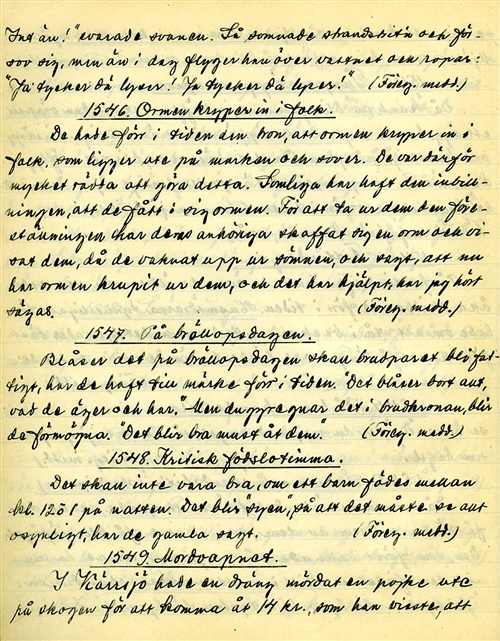 Int än!" svarade svanen. Så somnade strandsitn och för-
sov sig, men än i dag flyger han över vattnet och ropar:
"Ja tycker dä lyser! Ja tycker dä lyser!" (Föreg. medd.)
1546. Ormen kryper in i folk.
De hade förr i tiden den tron, att ormen kryper in i
folk, som ligger ute på marken och sover. De var därför
mycket rädda att göra detta. Somliga har haft den inbill-
ningen, att de fått i sig ormen. För att ta ur dem den före-
ställningen har deras anhöriga skaffat sig en orm och vi-
sat dem, då de vaknat upp ur sömnen, och sagt, att nu
har ormen krupit ur dem, och det har hjälpt, har jag hört
sägas. (Föreg. medd.)
1547. På bröllopsdagen.
Blåser det på bröllopsdagen skall brudparet bli fat-
tigt, har de haft till märke förr i tiden. "Det blåser bort allt,
vad de äger och har." Men duggregnar det i brudkronan, blir
de förmögna. "Det blir bra must åt dem". (Föreg. medd.)
1548. Kritisk födslotimma.
Det skall inte vara bra, om ett barn födes mellan
kl. 12 o 1 på natten. Det blir "syen", så att det måste se allt
osynligt, har de gamla sagt. (Föreg. medd.)
1549. Mordvapnet.
I Kärrsjö hade en dräng mördat en pojke ute
på skogen för att komma åt 14 kr., som han visste, att